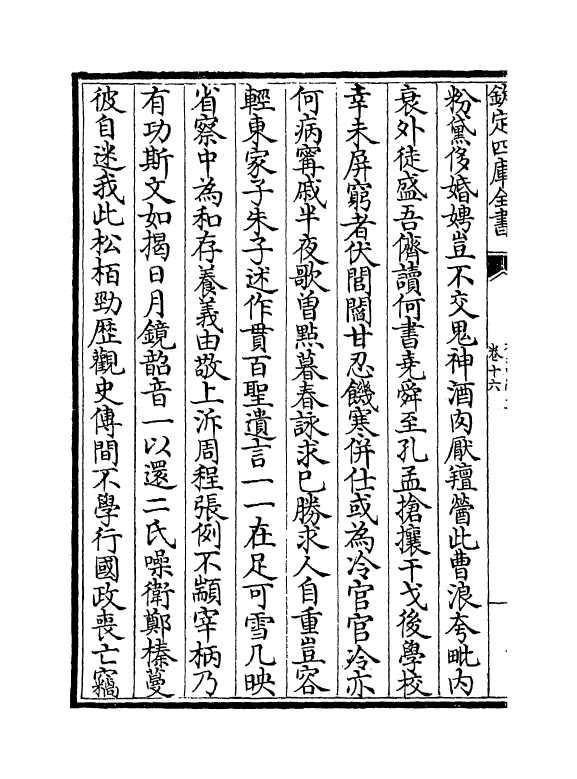 欽定四庫全書
卷十六
粉黛侈婚娉豈不交鬼神酒肉厭羶薌此曹浪夸毗内
衰外徒盛吾儕讀何書堯舜至孔孟搶攘干戈後學校
幸未屏窮者伏閭閻甘忍饑寒併仕或為冷官官冷亦
何病甯戚半夜歌曾點暮春詠求已勝求人自重豈容
輕東家子朱子述作貫百聖遺言一一在足可雪几映
省察中為和存養義由敬上泝周程張例不顓宰柄乃
有功斯文如揭日月鏡韶音一以還二氏噪衛鄭榛蔓
彼自迷我此松栢勁歴觀史傳間不學行國政喪亡竊